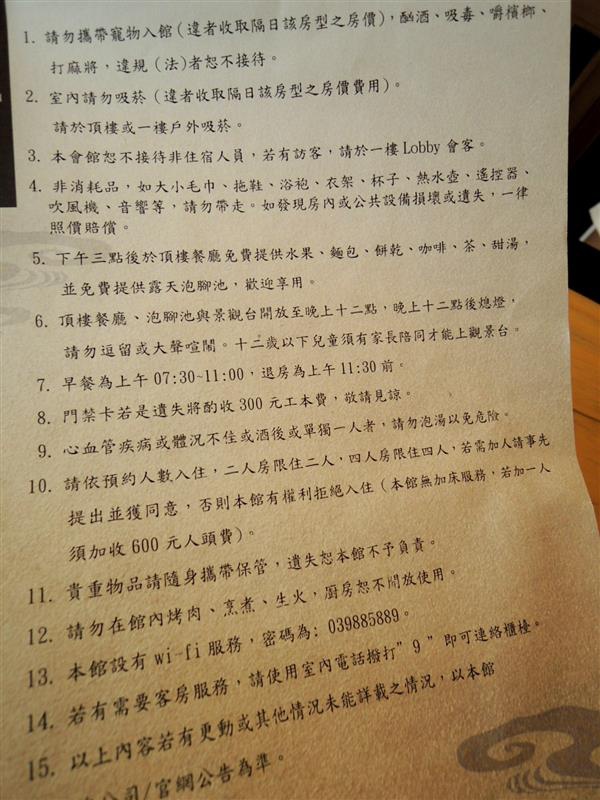 1. 請勿攜帶寵物入館(違者收取隔日該房型之房價),酗酒、吸毒、嚼檳榔、
打麻將,違規(法)者恕不接待。
2. 室內請勿吸菸(違者收取隔日該房型之房價費用)。
請於頂樓或一樓戶外吸菸。
3. 本會館恕不接待非住宿人員,若有訪客,請於一樓Lobby會客。
4. 非消耗品,如大小毛巾、拖鞋、浴袍、衣架、杯子、熱水壺、遙控器、
吹風機、音響等,請勿帶走。如發現房內或公共設備損壞或遺失,一律
照價賠償。
5. 下午三點後於頂樓餐廳免費提供水果、麵包、餅乾、咖啡、茶、甜湯,
並免費提供露天泡腳池,歡迎享用。
6. 頂樓餐廳、泡腳池與景觀台開放至晚上十二點,晚上十二點後熄燈,
請勿逗留或大聲喧鬧。十二歲以下兒童須有家長陪同才能上觀景台。
7. 早餐為上午07:30~11:00,退房為上午11:30前。
8. 門禁卡若是遺失將酌收300元工本費,敬請見諒。
9. 心血管疾病或體況不佳或酒後或單獨一人者,請勿泡湯以免危險。
10. 請依預約人數入住,二人房限住二人,四人房限住四人,若需加人請事先
提出並獲同意,否則本館有權利拒絕入住(本館無加床服務,若加一人
須加收600元人頭費)。
11. 貴重物品請隨身攜帶保管,遺失恕本館不予負責。
12. 請勿在館內烤肉、烹煮、生火,廚房恕不開放使用。
13. 本館設有wi-fi服務,密碼為: 039885889。
14. 若有需要客房服務,請使用室內電話撥打"9"即可連絡櫃檯。
15. 以上內容若有更動或其他情況未能詳載之情況,以本館
公司/官網公告為準。